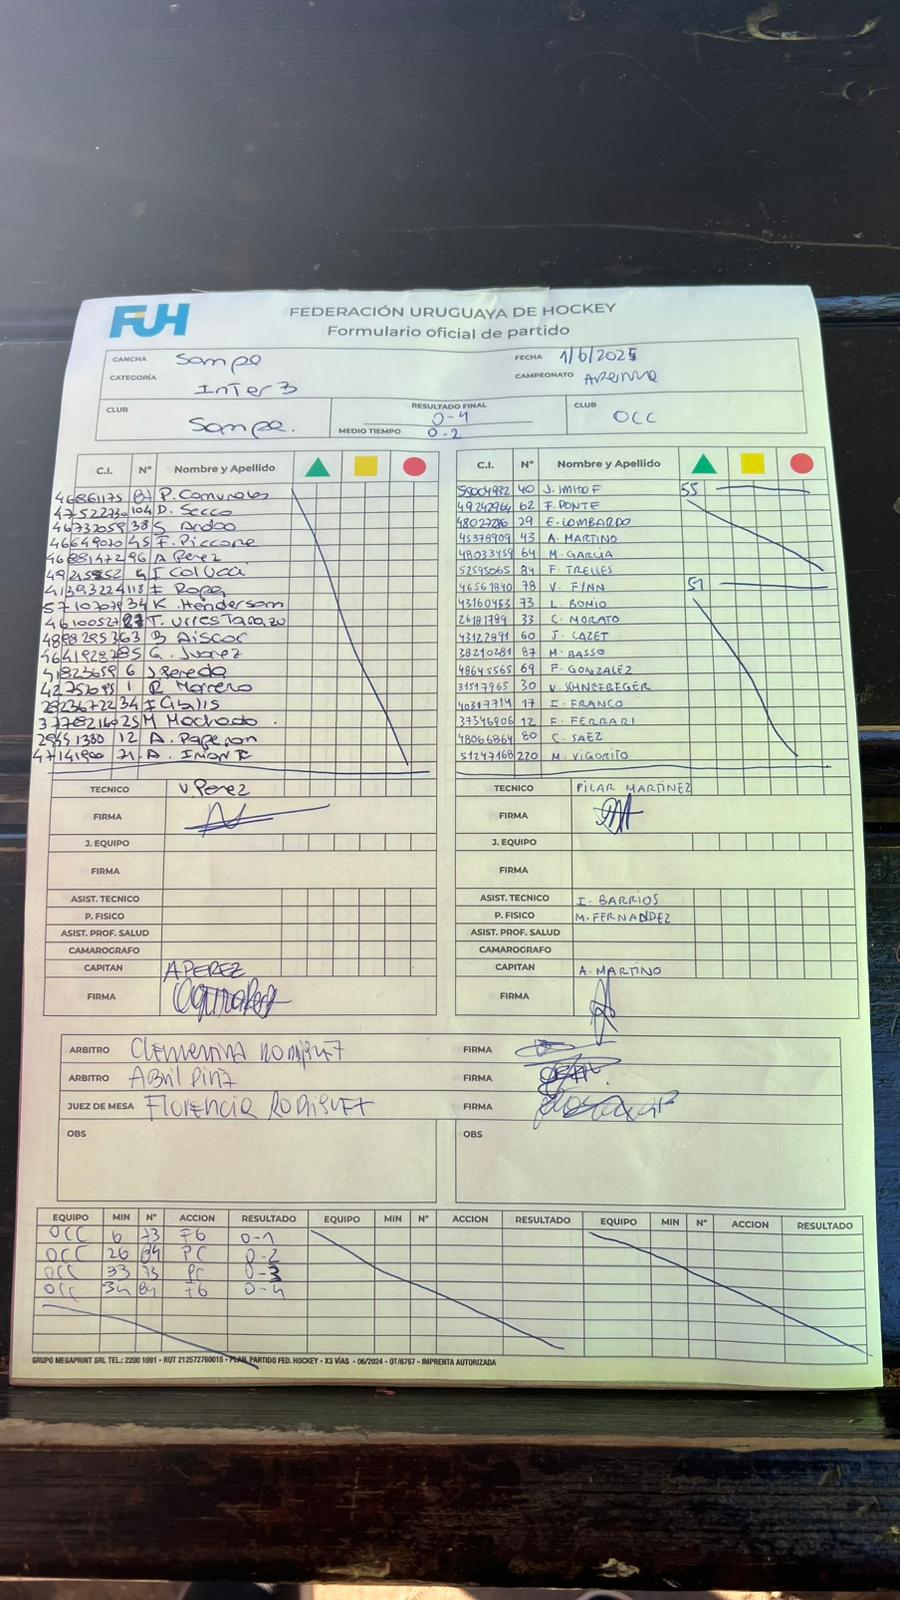 FUH
FEDERACIÓN URUGUAYA DE HOCKEY
Formulario oficial de partido
CANCHA Sampe FECHA 1/6/2025
CATEGORÍA Inter 3 CAMPEONATO
CLUB Sampe. RESULTADO FINAL 0-4 CLUB OCC
MEDIO TIEMPO 0-2
C.I. Nº Nombre y Apellido
46861175 P. Comunales
104 D. Secco
38 S.
46649020 45 F. Piccone
96 A Perez
I Colucci
118
34 K. Henderson
T. Urrestarazu
63 B Aiscar
85 G. Juarez
6 J Pereda
1 R Moreno
34 I
25 M Machado
12 A.
71 A.
TECNICO V. Perez
FIRMA
J. EQUIPO
FIRMA
ASIST. TECNICO
P. FISICO
ASIST. PROF. SALUD
CAMAROGRAFO
CAPITAN A PEREZ
FIRMA
C.I. Nº Nombre y Apellido
40 J. IMHOF 55
49242964 62 F. PONTE
48027286 29 E. LOMBARDO
45378909 43 A. MARTINO
48033459 64 M. GARCÍA
52595065 84 F. TRELLES
46561840 78 V. FYNN 51
43160453 73 L. BONIO
26181789 33 C. MORATO
43122891 60 J. CAZET
38210281 87 M. BASSO
48645565 69 F. GONZALEZ
31517965 30 V. SCHNEEBEGER
40317714 17 I. FRANCO
37346906 12 F. FERRARI
48066864 80 C. SAEZ
51247168 220 M. VIGORITO
TECNICO PILAR MARTINEZ
FIRMA
J. EQUIPO
FIRMA
ASIST. TECNICO I. BARRIOS
P. FISICO M. FERNANDEZ
ASIST. PROF. SALUD
CAMAROGRAFO
CAPITAN A. MARTINO
FIRMA
ARBITRO Clementina Rodriguez FIRMA
ARBITRO Abril Piriz FIRMA
JUEZ DE MESA Florencia Rodriguez FIRMA
OBS OBS
EQUIPO MIN Nº ACCION RESULTADO EQUIPO MIN Nº ACCION RESULTADO EQUIPO MIN Nº ACCION RESULTADO
OCC 6 73 FG 0-1
OCC 26 84 PC 0-2
OCC 33 73 PC 0-3
OCC 34 84 FG 0-4
GRUPO MEGAPRINT SRL TEL.: 2200 1091 - RUT 212572760015 - PLAN. PARTIDO FED. HOCKEY - X3 VÍAS - 06/2024 - OT/6767 - IMPRENTA AUTORIZADA